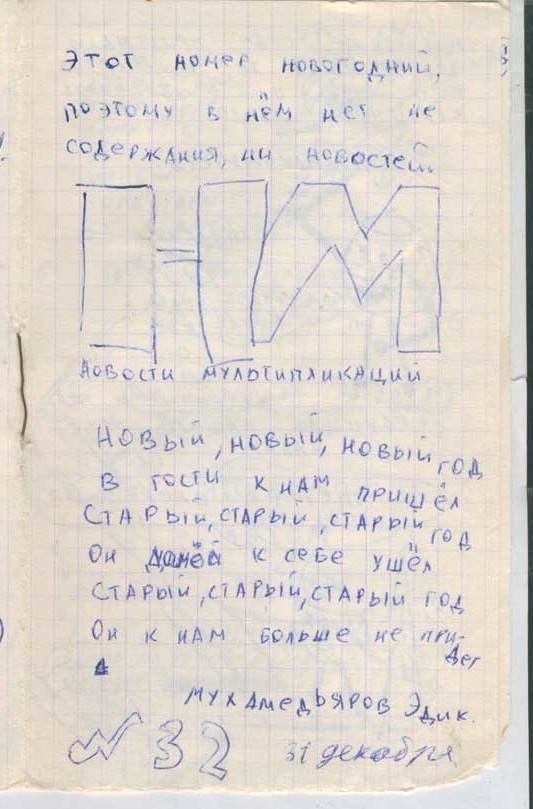 Этот номер новогодний,
поэтому в нём нет не
содержания, ни новостей.
НМ
Новости мультипликаций
Новый, новый, новый год
В гости к нам пришёл
Старый, старый, старый год
Он к себе ушёл
Старый, старый, старый год
Он к нам больше не при-
дет
Мухамедьяров Эдик.
№ 32 31 декабря